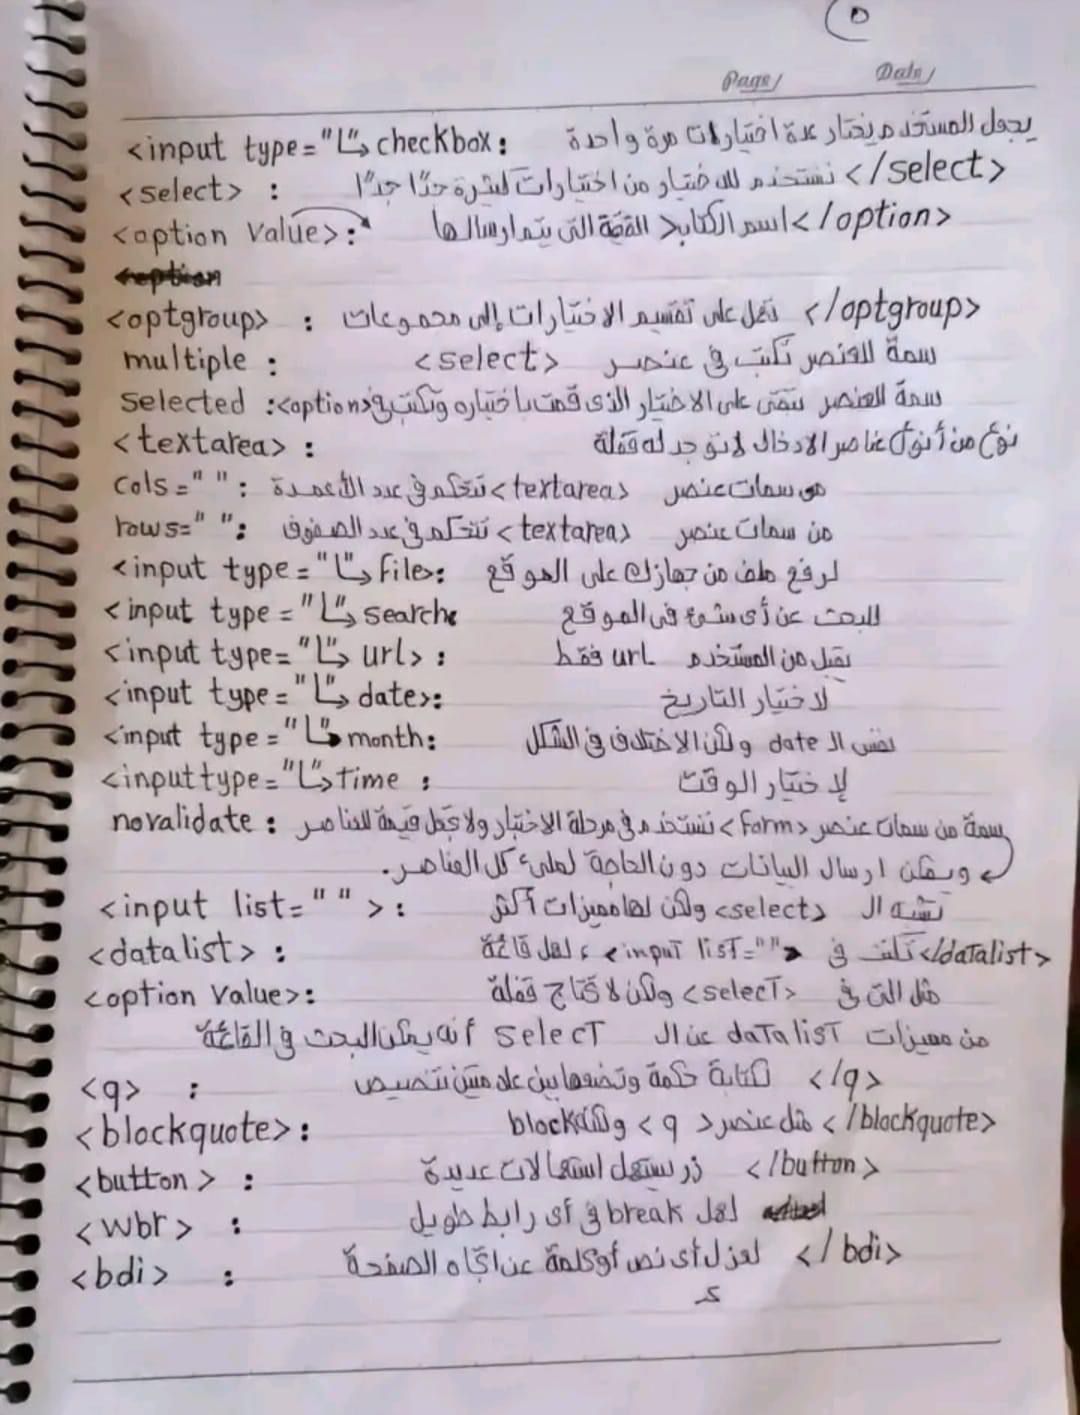 ٥
Page/ Date/
<input type="└" ↳ checkbox: يجعل المستخدم يختار عدة اختيارات مرة واحدة
<select> : نستخدم للاختيار من اختيارات كثيرة جدًا جدًا </select>
<option Value>: اسم الكتاب> القيمة التى يتم ارسالها </option>
<option
<optgroup> : تعمل على تقسيم الاختيارات إلى مجموعات </optgroup>
multiple : سمة للعنصر تكتب فى عنصر <select>
Selected : سمة للعنصر تبقى على الاختيار الذى قمت باختياره وتكتب فى <option>
<textarea> : نوع من أنواع عناصر الادخال لا توجد له قفلة
cols=" ": من سمات عنصر <textarea> تتحكم فى عدد الأعمدة
rows=" ": من سمات عنصر <textarea> تتحكم فى عدد الصفوف
<input type="└" ↳ file>: لرفع ملف من جهازك على الموقع
<input type="└" ↳ search: للبحث عن أى شئ فى الموقع
<input type="└" ↳ url> : يقبل من المستخدم url فقط
<input type="└" ↳ date>: لاختيار التاريخ
<input type="└" ↳ month: نفس الـ date ولكن الاختلاف فى الشكل
<input type="└" ↳ time : لإختيار الوقت
novalidate : سمة من سمات عنصر <form> تستخدم فى مرحلة الاختبار ولا تجعل قيمة للعناصر
ويمكن ارسال البيانات دون الحاجة لملئ كل العناصر.
<input list=" " > : تشبه الـ <select> ولكن لها مميزات أكثر
<datalist> : تكتب فى <input list=" "> ، لعمل قائمة </datalist>
<option Value>: مثل التى فى <select> ولكن لا تحتاج قفلة
من مميزات datalist عن الـ select أنه يمكن البحث فى القائمة
<q> : لكتابة حكمة وتضعها بين علامتين تنصيص </q>
<blockquote> : مثل عنصر <q> ولكنه block </blockquote>
<button> : زر يستعمل استعمالات عديدة </button>
<wbr> : لعمل break فى أى رابط طويل
<bdi> : لعزل أى نص أو كلمة عن اتجاه الصفحة </bdi>